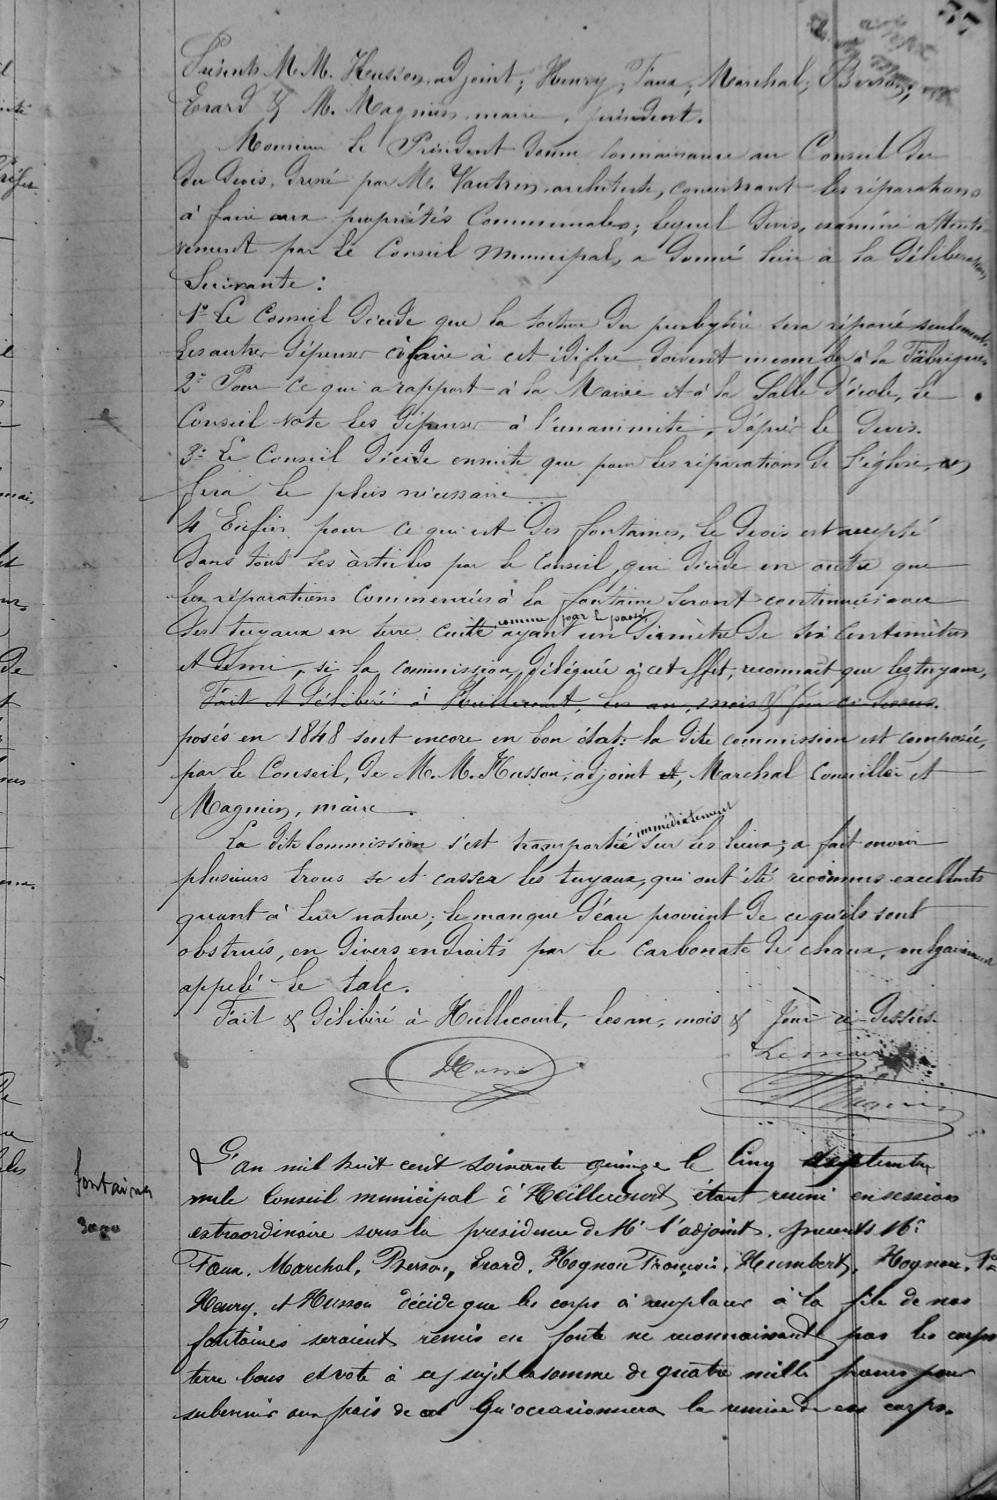 37
Présents M M. Husson, adjoint; Henry; Faux; Marchal; Berson;
Erard & M. Magnin maire, président.
Monsieur le Président donne connaissance au Conseil du
du devis, dressé par M. Vautrin architecte, concernant les réparations
à faire aux propriétés Communales; lequel devis, examiné attenti-
vement par le Conseil Municipal, a donné lieu à la délibération
Suivante:
1° Le Conseil décide que la toiture du presbytère sera réparée seulement
les autres dépenses à faire à cet édifice doivent incomber à la Fabrique.
2° Pour ce qui a rapport à la Mairie et à la Salle d'école, le
Conseil vote les dépenses à l'unanimité, d'après le devis.
3° Le Conseil décide ensuite que pour les réparations de l'église, on
fera le plus nécessaire
4 Enfin pour ce qui est des fontaines, le devis est accepté
dans tous ses articles par le Conseil, qui décide en outre que
les réparations commencées à la fontaine seront continuées avec
comme par le passé,
des tuyaux en terre cuite ayant un diamètre de six centimètres
et demi, si la commission déléguée à cet effet, reconnait que les tuyaux,
Fait et délibéré à Heillecourt, les an, mois & jour ci-dessus.
posés en 1848 sont encore en bon état: la dite commission est composée,
par le Conseil, de M. M. Husson, adjoint et, Marchal Conseiller et
Magnin, maire.
immédiatement
La dite Commission s'est transportée sur les lieux; a fait ouvrir
plusieurs trous et casser les tuyaux, qui ont été reconnus excellents
quant à leur nature; le manque d'eau provient de ce qu'ils sont
obstrués, en divers endroits par le carbonate de chaux, vulgairement
appelé le talc.
Fait & délibéré à Heillecourt, les an, mois & jour ci-dessus
Le maire
Husson
Magnin
fontaines
L'an mil huit cent soixante quinze le cinq septembre
Conseil municipal d'Heillecourt étant réuni en session
extraordinaire sous la présidence de Mr l'adjoint. présents Mrs
Faux. Marchal, Berson, Erard, Hognon François, Humbert, Hognon
Henry, et Husson décide que les corps à remplacer à la file de nos
fontaines seraient remis en fonte ne reconnaissant pas les corps
terre bons et vote à ce sujet la somme de quatre mille francs pour
subvenir aux frais de qu'occasionnera la remise de ces corps.